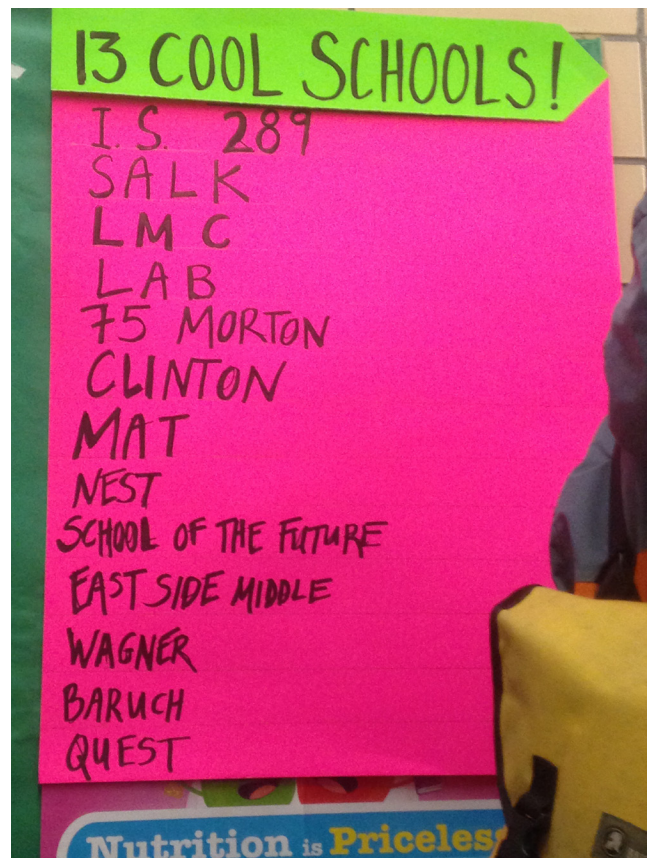 13 COOL SCHOOLS!
I.S. 289
SALK
LMC
LAB
75 MORTON
CLINTON
MAT
NEST
SCHOOL OF THE FUTURE
EAST SIDE MIDDLE
WAGNER
BARUCH
QUEST
Nutrition is Priceless